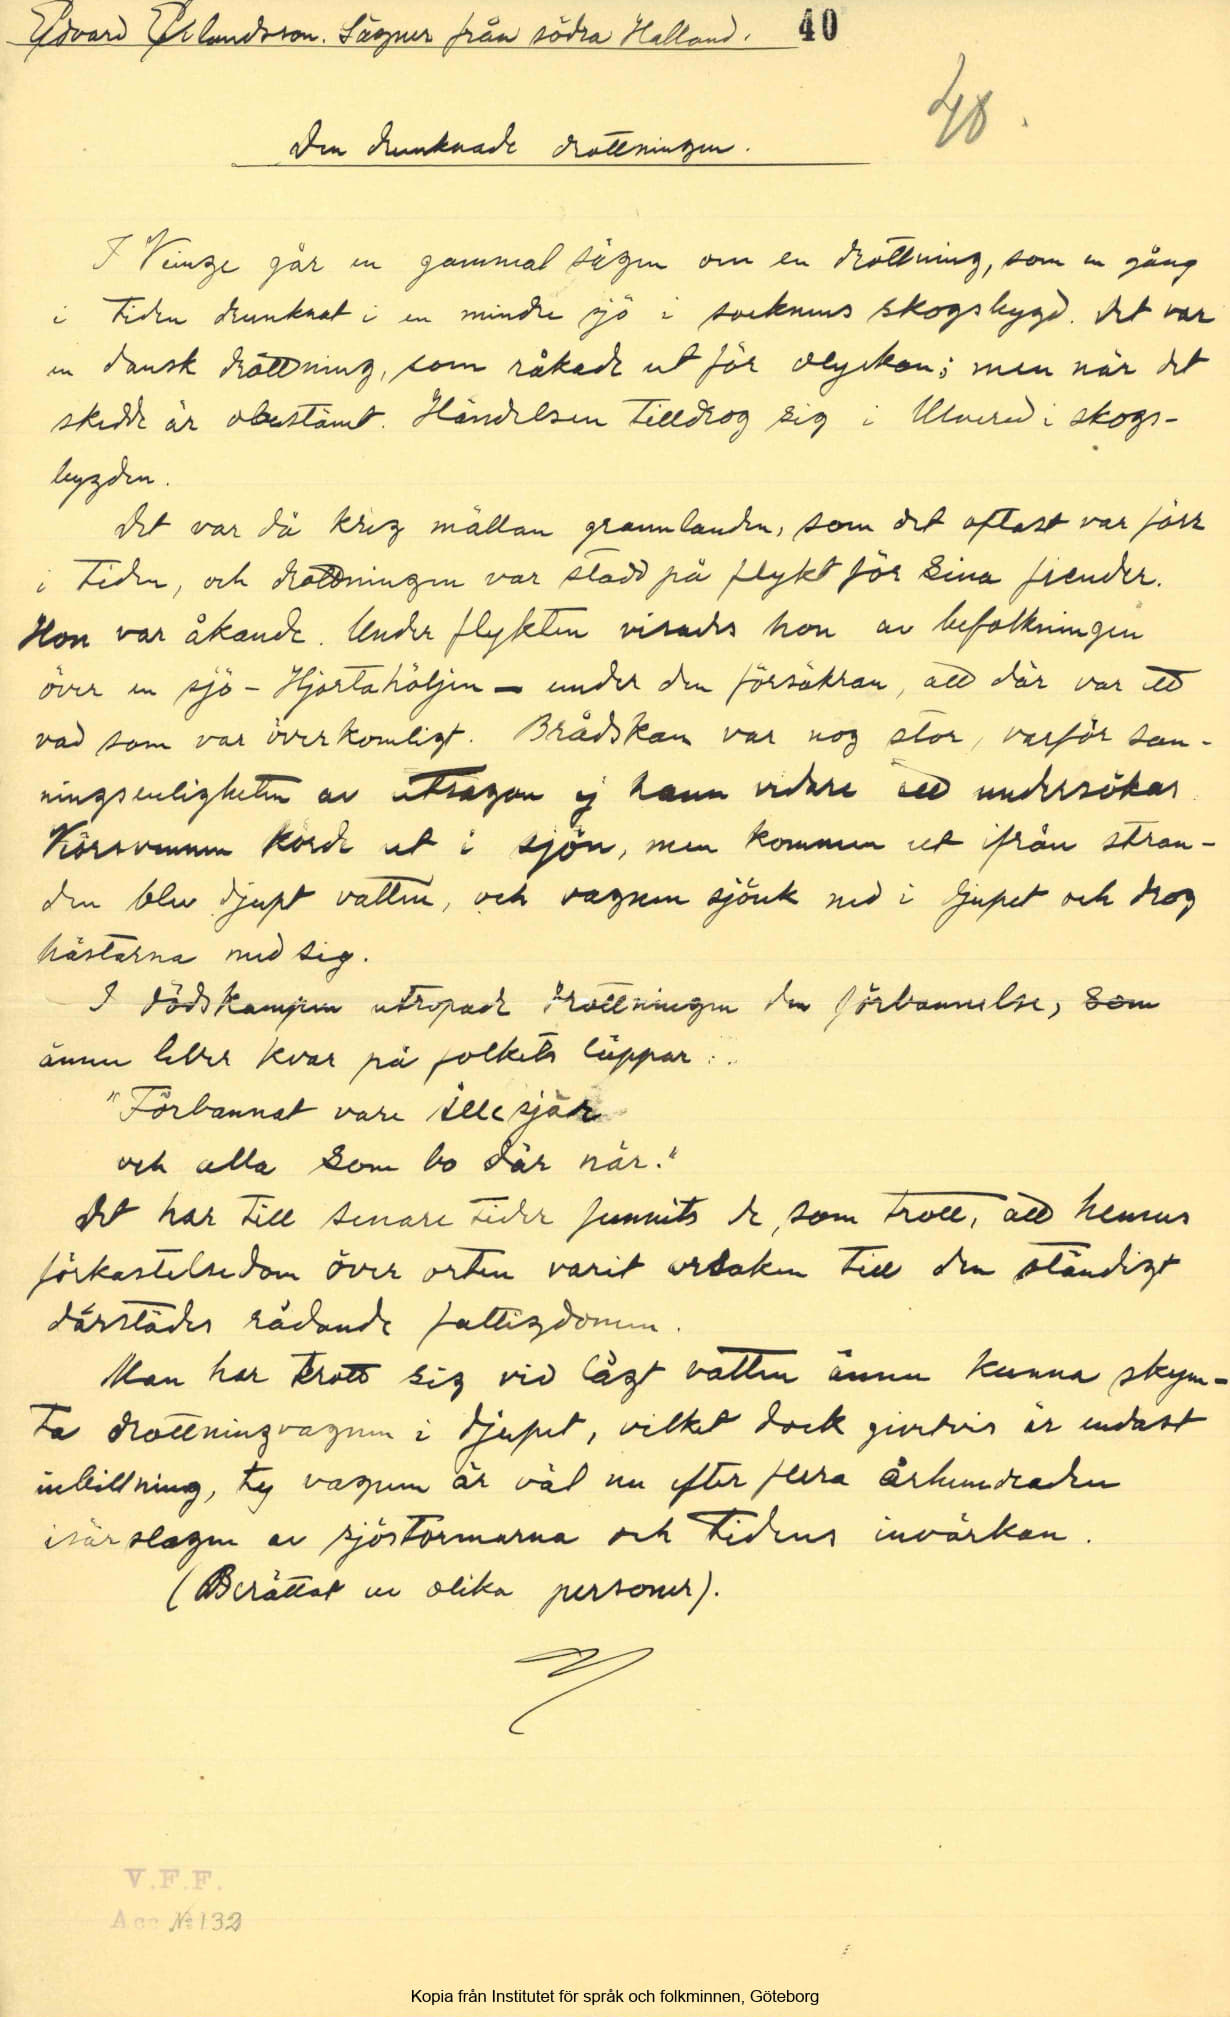 Edvard Erlandsson. Sägner från södra Halland. 40
48.
Den drunknade drottningen.
I Veinge går en gammal sägen om en drottning, som en gång
i tiden drunknat i en mindre sjö i socknens skogsbygd. Det var
en dansk drottning, som råkade ut för olyckan; men när det
skedde är obestämt. Händelsen tilldrog sig i Ulvered i skogs-
bygden.
Det var då krig mällan grannlanden, som det oftast var förr
i tiden, och drottningen var stadd på flykt för sina fiender.
Hon var åkande. Under flykten visades hon av befolkningen
över en sjö - Hjortahöljen - under den försäkran, att där var ett
vad som var överkomligt. Brådskan var nog stor, varför san-
ningsenligheten av utsagon ej hann vidare att undersökas.
Körsvennen körde ut i sjön, men kommen ut ifrån stran-
den blev djupt vatten, och vagnen sjönk ned i djupet och drog
hästarna med sig.
I dödskampen utropade drottningen den förbannelse, som
ännu lever kvar på folkets läppar:
"Förbannat vare ille sjär
och alla som bo där när."
Det har till senare tider funnits de, som trott, att hennes
förkastelsedom över orten varit orsaken till den ständigt
därstädes rådande fattigdomen.
Man har trott sig vid lågt vatten ännu kunna skym-
ta drottningvagnen i djupet, vilket dock givetvis är endast
inbillning, ty vagnen är väl nu efter flera århundraden
isärslagen av sjöstormarna och tidens invärkan.
(Berättat av olika personer).
V.F.F.
Acc № 132
Kopia från Institutet för språk och folkminnen, Göteborg